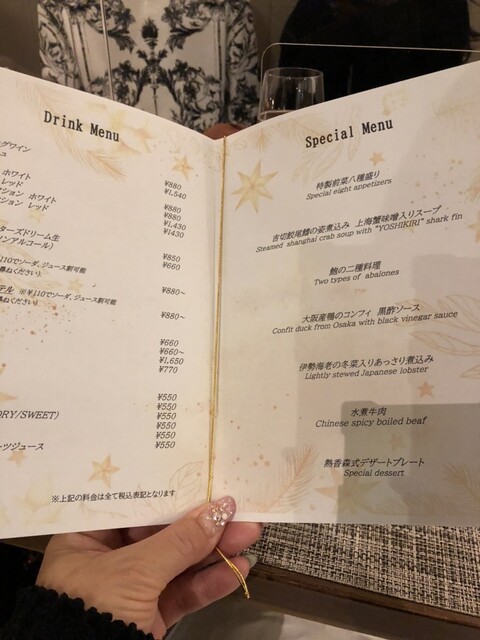 Drink Menu
グワイン
ュ
ホワイト
¥880
レッド
¥1,540
ーション ホワイト
ーション レッド
¥880
¥880
¥1,430
¥1430
ターズドリーム生
ンアルコール)
¥850
110でソーダ、ジュース割可能
¥660
尋ねください)
テル ※¥110でソーダ、ジュース割可能
¥880~
尋ねください)
¥660
¥660~
¥1,650
¥770
¥550
¥550
DRY/SWEET)
¥550
¥550
¥550
ーツジュース
¥550
※上記の料金は全て税込表記となります
Special Menu
特製前菜八種盛り
Special eight appetizers
吉切鮫尾鰭の姿煮込み 上海蟹味噌入りスープ
Steamed shanghai crab soup with "YOSHIKIRI" shark fin
鮑の二種料理
Two types of abalones
大阪産鴨のコンフィ 黒酢ソース
Confit duck from Osaka with black vinegar sauce
伊勢海老の冬菜入りあっさり煮込み
Lightly stewed Japanese lobster
水煮牛肉
Chinese spicy boiled beaf
熱香森式デザートプレート
Special dessert